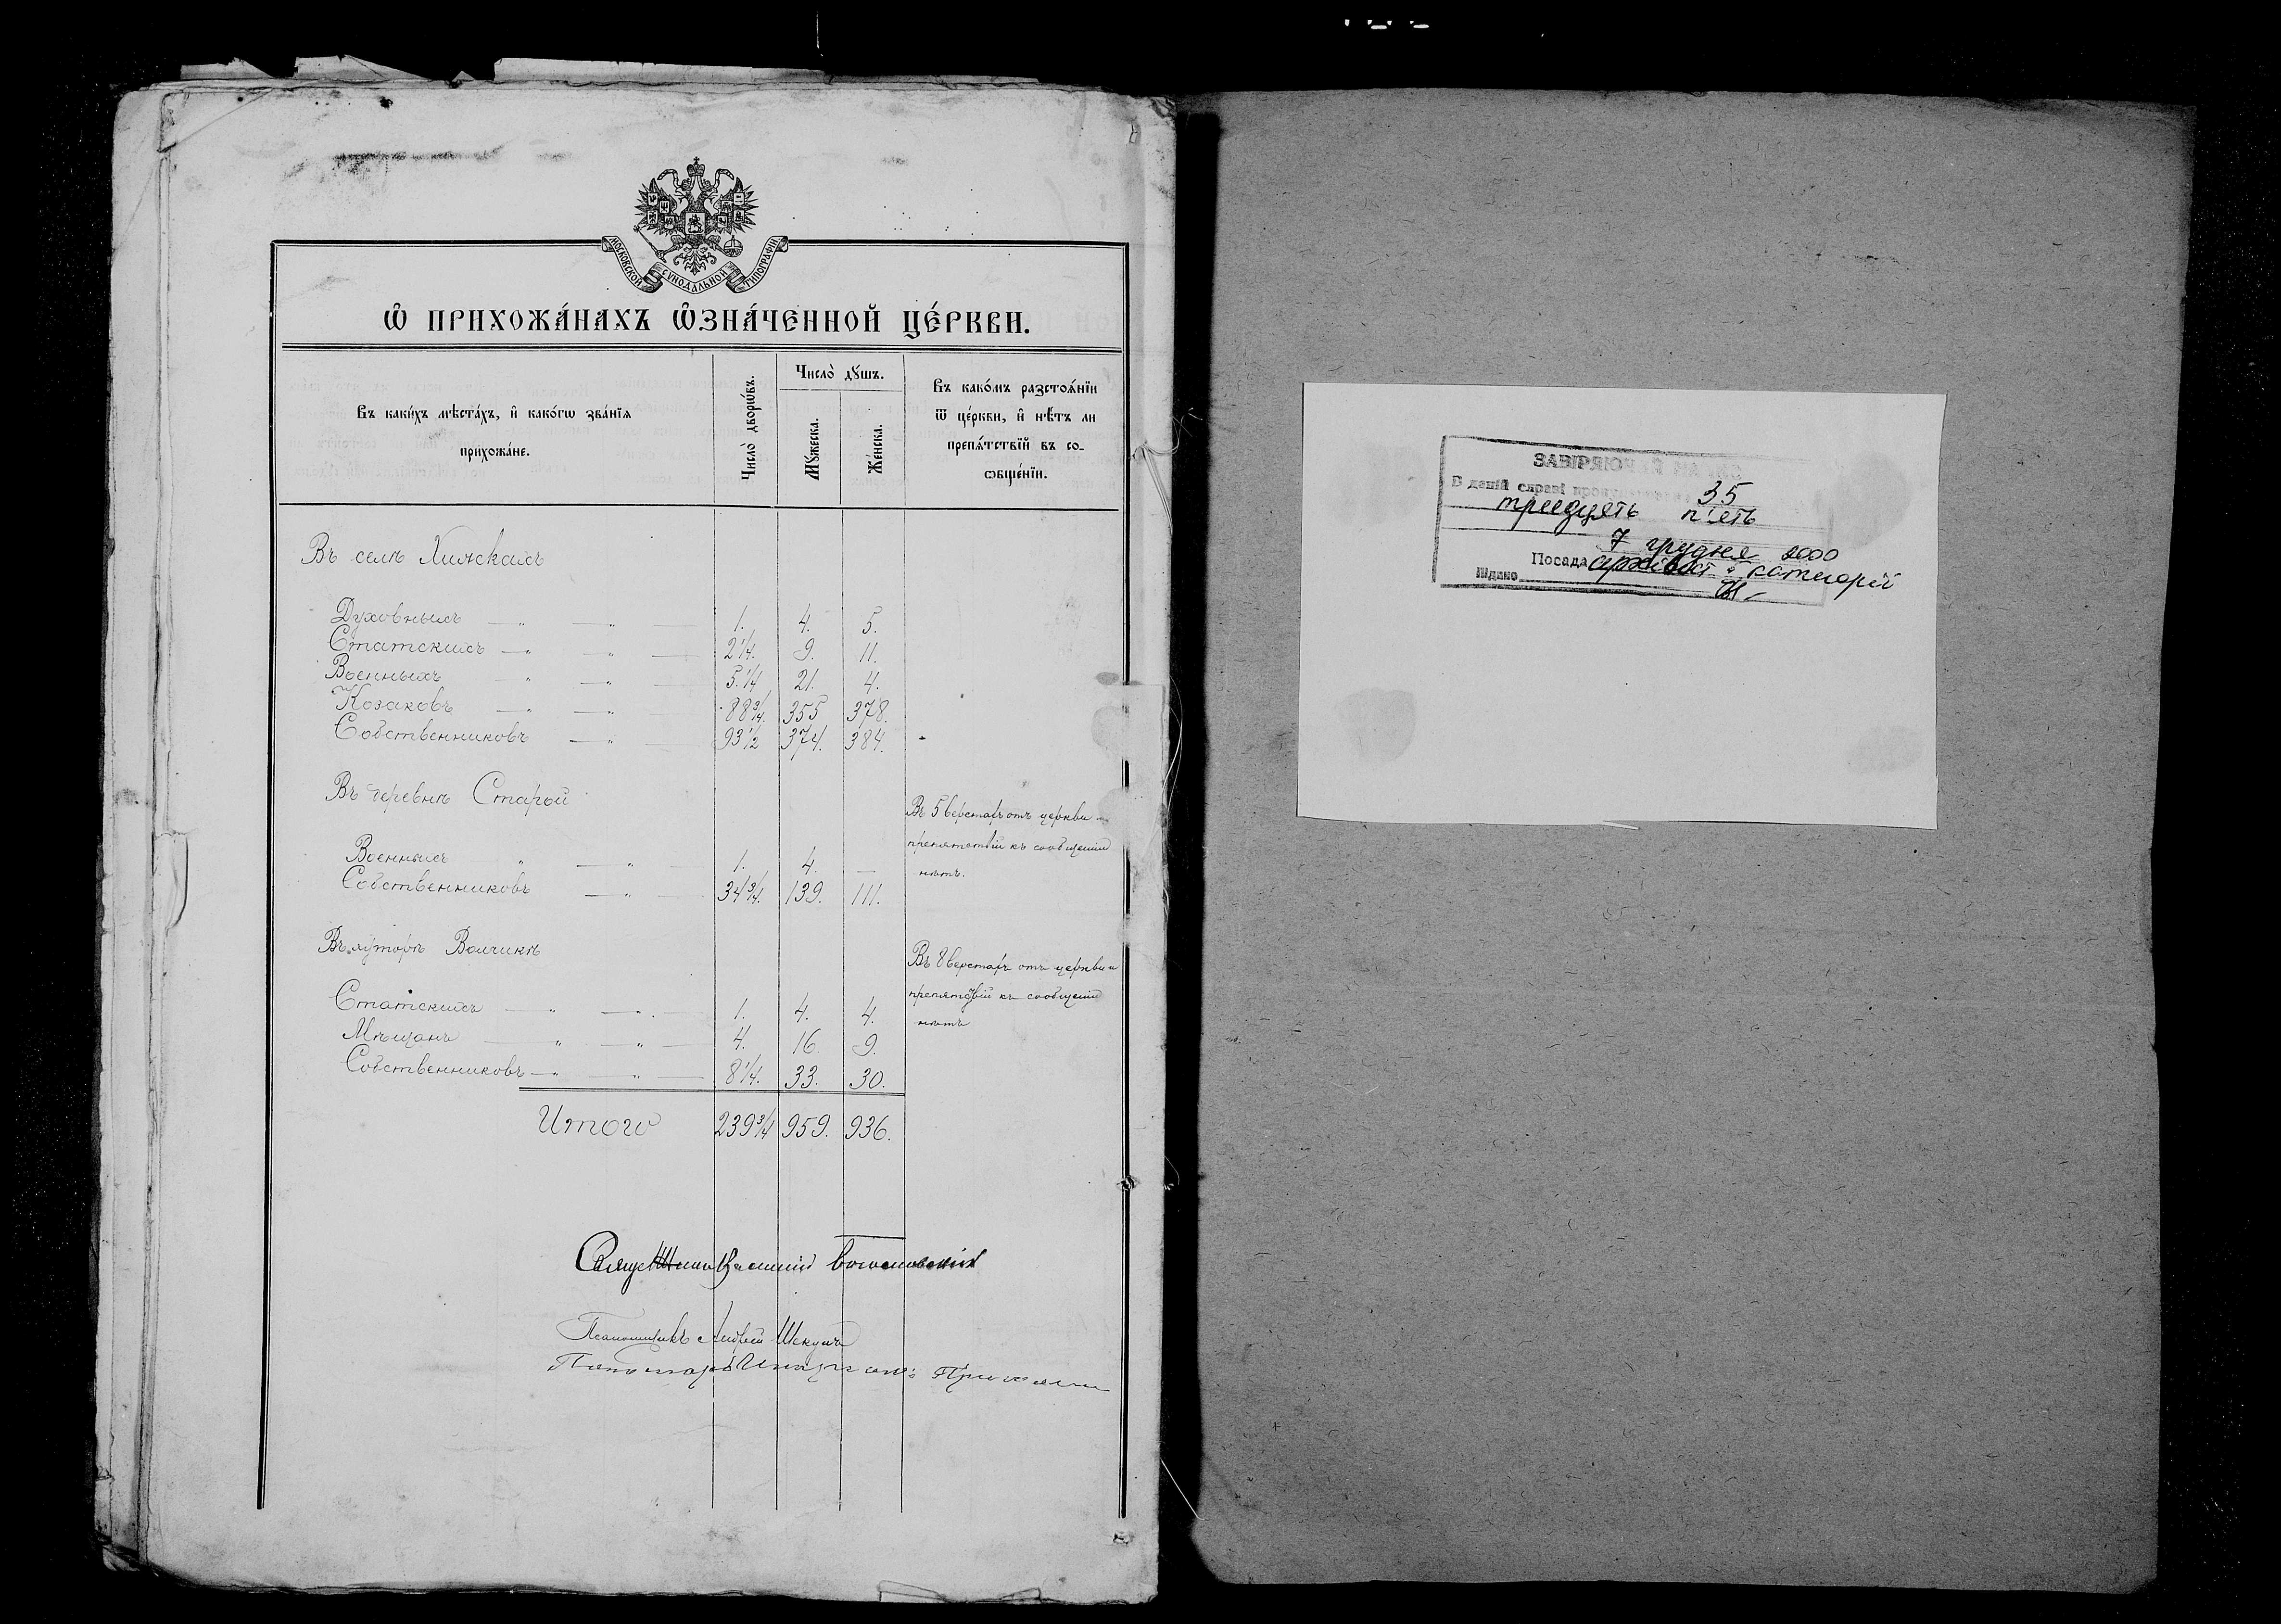 МОСКОВСКОЙ СѴНОДАЛЬНОЙ ТИПОГРАФІИ
Ѽ ПРИХОЖА́НАХЪ Ѽ҆ЗНА́ЧЕННОЙ ЦЕ́РКВИ.
Въ каки́хъ мѣста́хъ, и҆ како́гѡ зва́нїѧ прихожа́не.
Число̀ дворѡ́въ.
Число̀ дꙋшъ.
Мꙋ́жеска.
Же́нска.
Въ како́мъ разстоѧ́нїи ѿ це́ркви, и҆ нѣ́тъ ли препѧ́тствїй въ со-ѻбще́нїи.
Въ селѣ
Духовныхъ — „ — „ — 1. 4. 5.
Статскихъ — „ „ — 2 1/4. 9. 11.
Военныхъ „ — „ — 5. 1/4 21. 4.
Козаковъ — „ — „ — 88 3/4. 355 378.
Собственниковъ — „ — 93 1/2 374. 384.
Въ деревнѣ Старой
Въ 5 верстахъ отъ церкви
препятствій къ сообщенію
нѣтъ.
Военныхъ „ — „ — 1. 4. —
Собственниковъ — „ — 34 3/4. 139. 111.
Въ хуторѣ Волчикѣ
Въ 8 верстахъ отъ церкви и
препятствій къ сообщенію
нѣтъ
Статскихъ — „ — „ — 1. 4. 4.
Мѣщанъ — „ — „ — 4. 16. 9.
Собственниковъ — „ „ — 8 1/4. 33. 30.
Итого 239 3/4 959. 936.
Василій
Псаломщикъ Андрей
Пономарь
ЗАВІРЯЮЧИЙ НАПИС
В даній справі 35
тридцять п'ять
7 грудня 2000
Посада архівіст категорії
Підпис